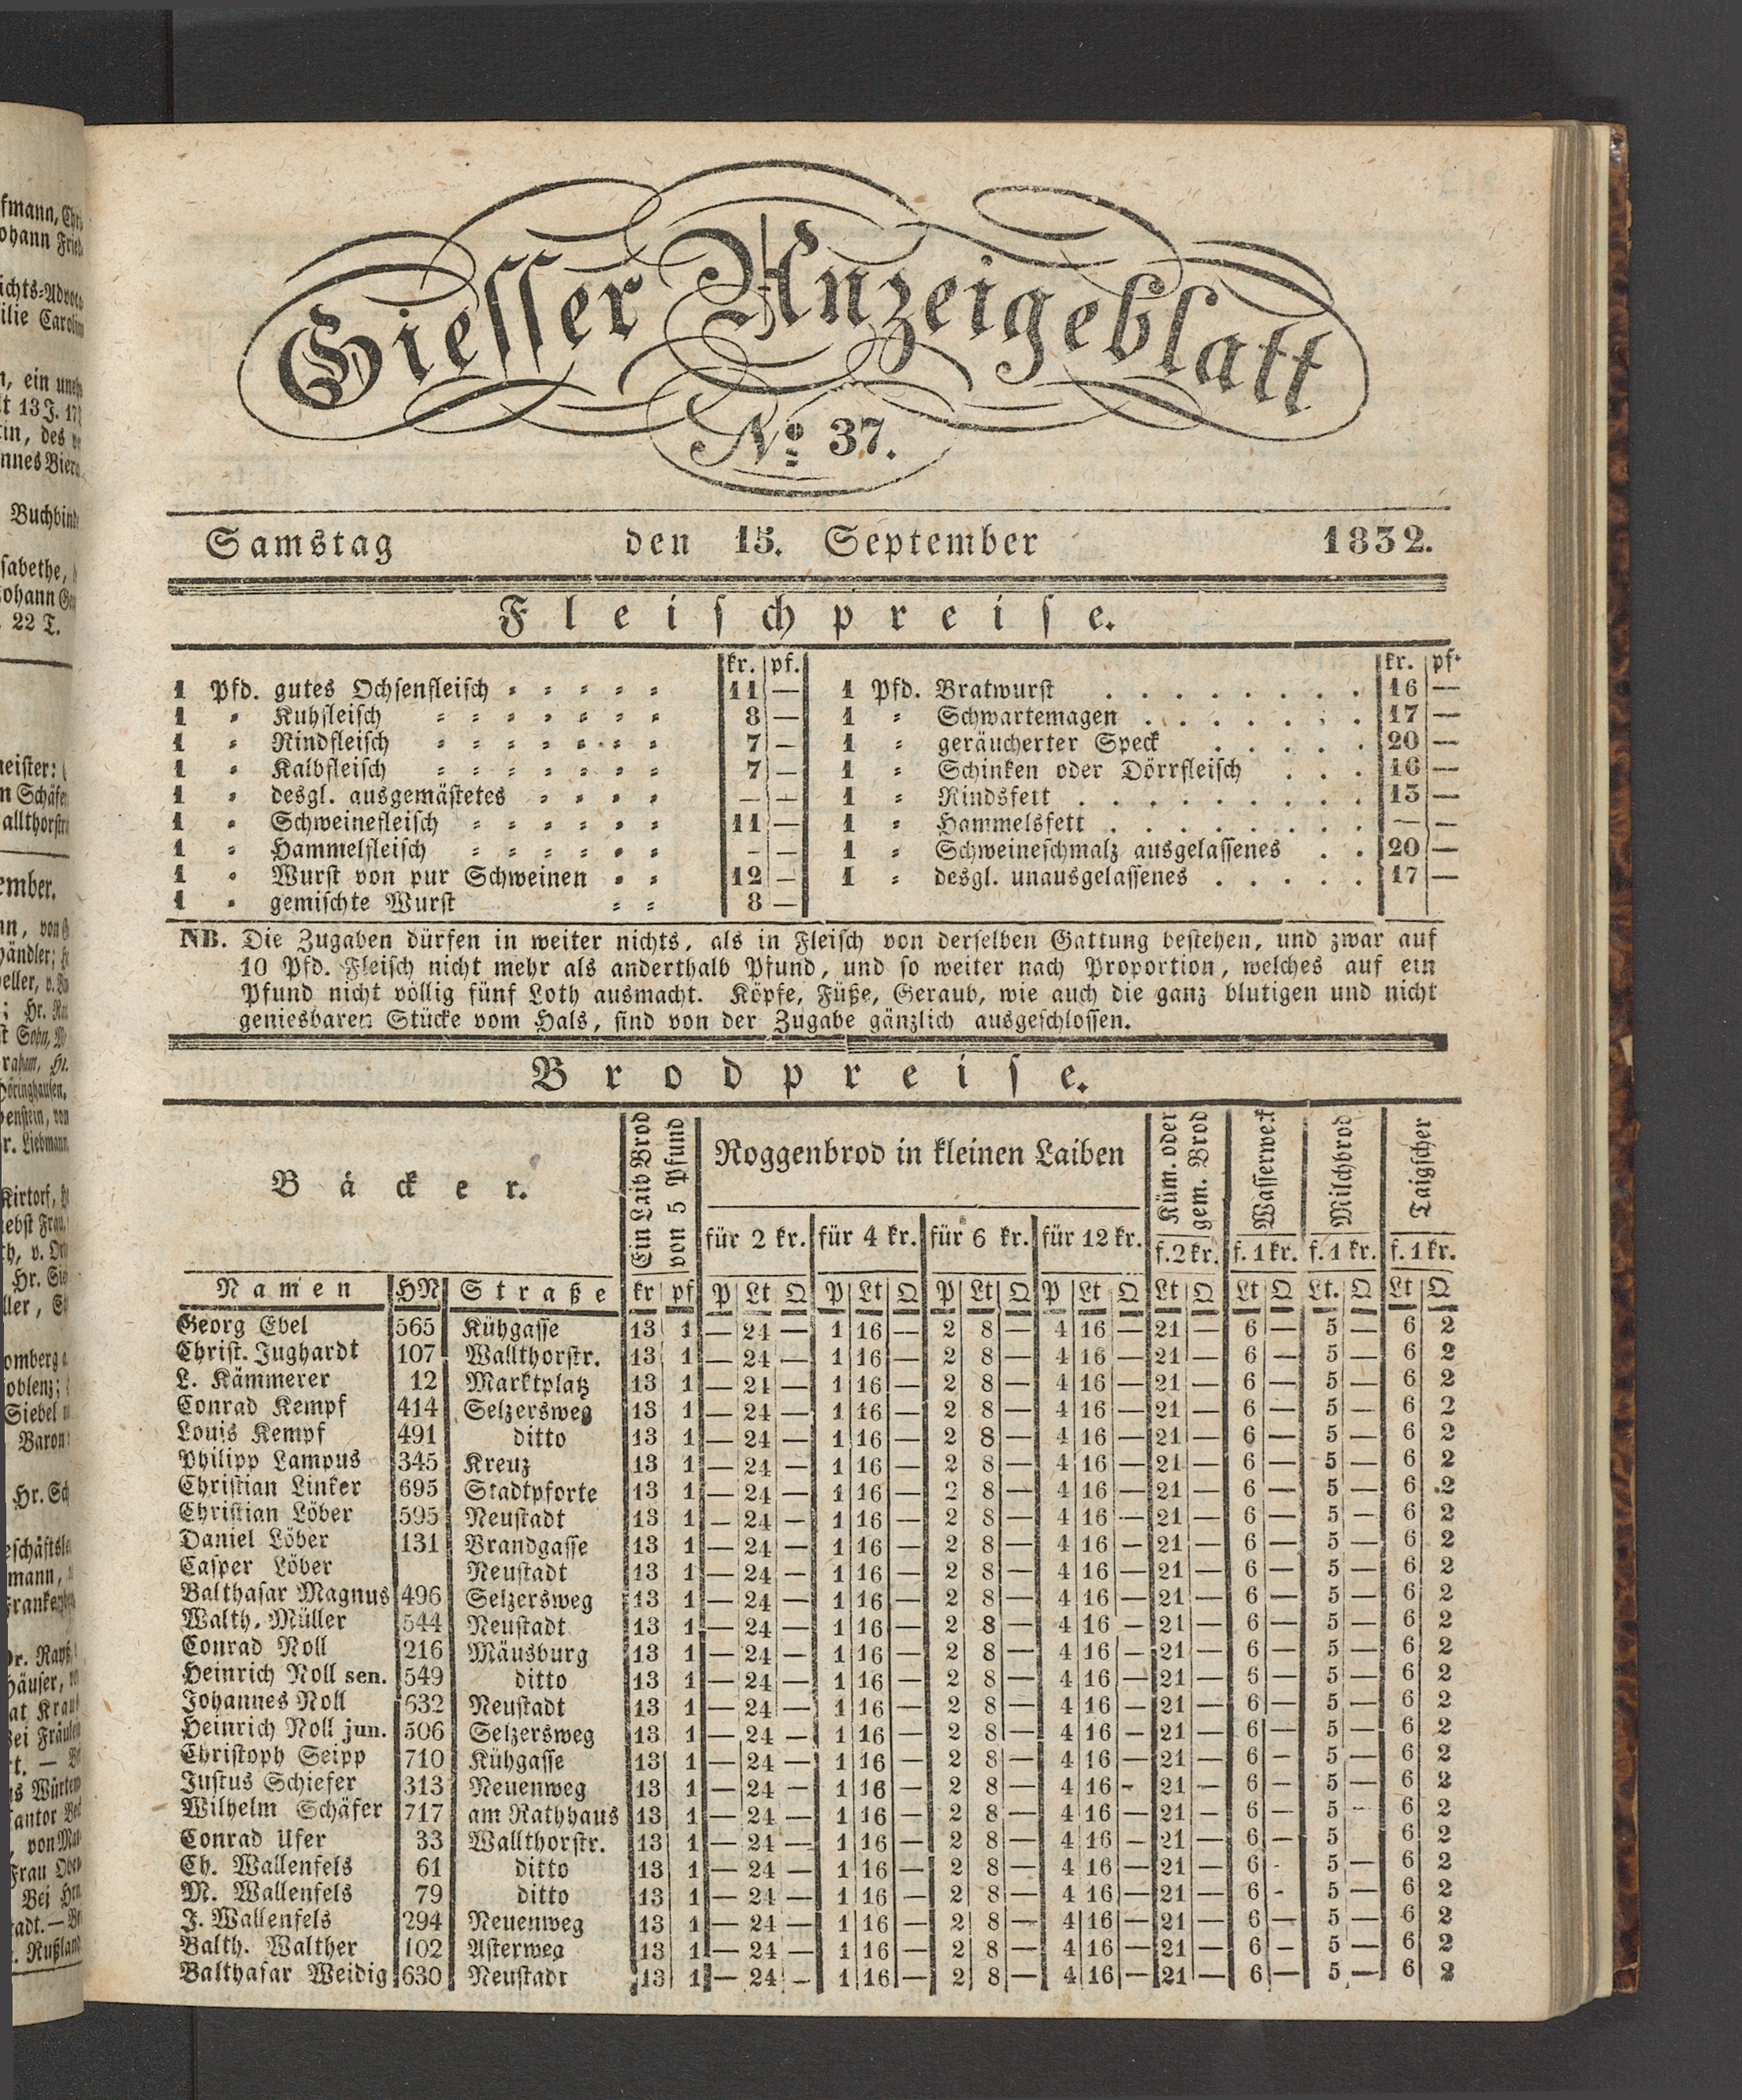 Giesser Anzeigeblatt
No. 37.
Samstag den 15. September 1832.
Fleischpreise.
kr. pf. kr. pf.
1 Pfd. gutes Ochsenfleisch 11 — 1 Pfd. Bratwurst 16 —
1 " Kuhfleisch 8 — 1 " Schwartemagen 17 —
1 " Rindfleisch 7 — 1 " geräucherter Speck 20 —
1 " Kalbfleisch 7 — 1 " Schinken oder Dörrfleisch 16 —
1 " desgl. ausgemästetes — — 1 " Rindsfett 15 —
1 " Schweinefleisch 11 — 1 " Hammelsfett — —
1 " Hammelfleisch — — 1 " Schweineschmalz ausgelassenes 20 —
1 " Wurst von pur Schweinen 12 — 1 " desgl. unausgelassenes 17 —
1 " gemischte Wurst 8 —
NB. Die Zugaben dürfen in weiter nichts, als in Fleisch von derselben Gattung bestehen, und zwar auf
10 Pfd. Fleisch nicht mehr als anderthalb Pfund, und so weiter nach Proportion, welches auf ein
Pfund nicht völlig fünf Loth ausmacht. Köpfe, Füße, Geraub, wie auch die ganz blutigen und nicht
geniesbaren Stücke vom Hals, sind von der Zugabe gänzlich ausgeschlossen.
Brodpreise.
Bäcker. Ein Laib Brod von 5 Pfund Roggenbrod in kleinen Laiben Küm. oder gem. Brod Wasserweck Milchbrod Taigscher
für 2 kr. für 4 kr. für 6 kr. für 12 kr. f. 2 kr. f. 1 kr. f. 1 kr. f. 1 kr.
Namen HN Straße kr pf P Lt Q P Lt Q P Lt Q P Lt Q Lt Q Lt Q Lt. Q Lt Q
Georg Ebel 565 Kühgasse 13 1 — 24 — 1 16 — 2 8 — 4 16 — 21 — 6 — 5 — 6 2
Christ. Jughardt 107 Wallthorstr. 13 1 — 24 — 1 16 — 2 8 — 4 16 — 21 — 6 — 5 — 6 2
L. Kämmerer 12 Marktplatz 13 1 — 24 — 1 16 — 2 8 — 4 16 — 21 — 6 — 5 — 6 2
Conrad Kempf 414 Selzersweg 13 1 — 24 — 1 16 — 2 8 — 4 16 — 21 — 6 — 5 — 6 2
Louis Kempf 491 ditto 13 1 — 24 — 1 16 — 2 8 — 4 16 — 21 — 6 — 5 — 6 2
Philipp Lampus 345 Kreuz 13 1 — 24 — 1 16 — 2 8 — 4 16 — 21 — 6 — 5 — 6 2
Christian Linker 695 Stadtpforte 13 1 — 24 — 1 16 — 2 8 — 4 16 — 21 — 6 — 5 — 6 2
Christian Löber 595 Neustadt 13 1 — 24 — 1 16 — 2 8 — 4 16 — 21 — 6 — 5 — 6 2
Daniel Löber 131 Brandgasse 13 1 — 24 — 1 16 — 2 8 — 4 16 — 21 — 6 — 5 — 6 2
Casper Löber Neustadt 13 1 — 24 — 1 16 — 2 8 — 4 16 — 21 — 6 — 5 — 6 2
Balthasar Magnus 496 Selzersweg 13 1 — 24 — 1 16 — 2 8 — 4 16 — 21 — 6 — 5 — 6 2
Walth. Müller 544 Neustadt 13 1 — 24 — 1 16 — 2 8 — 4 16 — 21 — 6 — 5 — 6 2
Conrad Noll 216 Mäusburg 13 1 — 24 — 1 16 — 2 8 — 4 16 — 21 — 6 — 5 — 6 2
Heinrich Noll sen. 549 ditto 13 1 — 24 — 1 16 — 2 8 — 4 16 — 21 — 6 — 5 — 6 2
Johannes Noll 632 Neustadt 13 1 — 24 — 1 16 — 2 8 — 4 16 — 21 — 6 — 5 — 6 2
Heinrich Noll jun. 506 Selzersweg 13 1 — 24 — 1 16 — 2 8 — 4 16 — 21 — 6 — 5 — 6 2
Christoph Seipp 710 Kühgasse 13 1 — 24 — 1 16 — 2 8 — 4 16 — 21 — 6 — 5 — 6 2
Justus Schiefer 313 Neuenweg 13 1 — 24 — 1 16 — 2 8 — 4 16 — 21 — 6 — 5 — 6 2
Wilhelm Schäfer 717 am Rathhaus 13 1 — 24 — 1 16 — 2 8 — 4 16 — 21 — 6 — 5 — 6 2
Conrad Ufer 33 Wallthorstr. 13 1 — 24 — 1 16 — 2 8 — 4 16 — 21 — 6 — 5 6 2
Ch. Wallenfels 61 ditto 13 1 — 24 — 1 16 — 2 8 — 4 16 — 21 — 6 - 5 — 6 2
M. Wallenfels 79 ditto 13 1 — 24 — 1 16 — 2 8 — 4 16 — 21 — 6 - 5 — 6 2
J. Wallenfels 294 Neuenweg 13 1 — 24 — 1 16 — 2 8 — 4 16 — 21 — 6 — 5 — 6 2
Balth. Walther 102 Asterweg 13 1 — 24 — 1 16 — 2 8 — 4 16 — 21 — 6 — 5 — 6 2
Balthasar Weidig 630 Neustadt 13 1 — 24 — 1 16 — 2 8 — 4 16 — 21 — 6 — 5 — 6 2